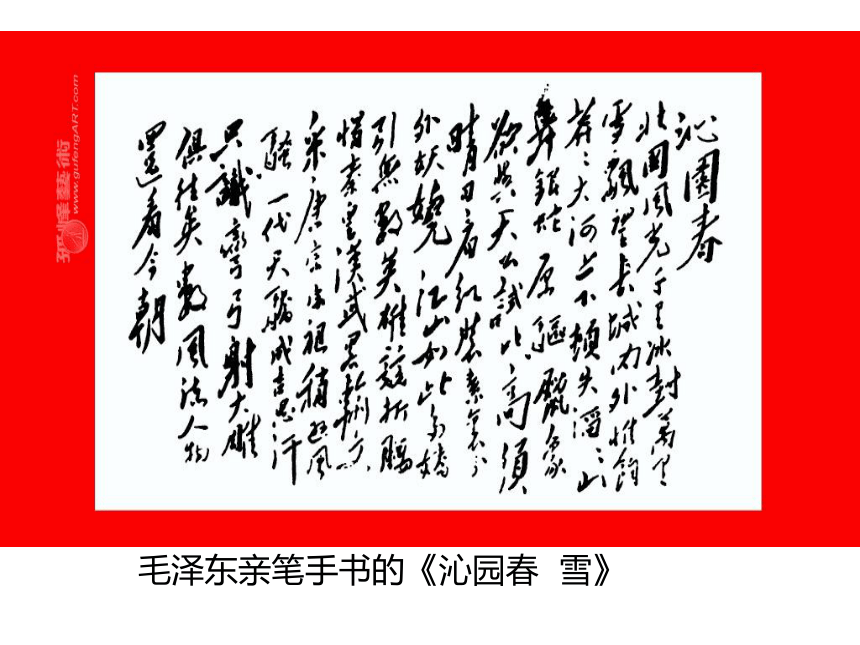 沁園春
北國風光千里冰封萬里
雪飄望長城内外惟餘
莽〻大河上下頓失滔〻山
舞銀蛇原驅臘象
欲與天公試比高須
晴日看紅裝素裹分
外妖嬈江山如此多嬌
引無數英雄競折腰
惜秦皇漢武略輸文
采唐宗宋祖稍遜風
騷一代天驕成吉思汗
只識彎弓射大雕
俱往矣數風流人物
還看今朝
孤峰藝術
www.gufengART.com
毛泽东亲笔手书的《沁园春 雪》